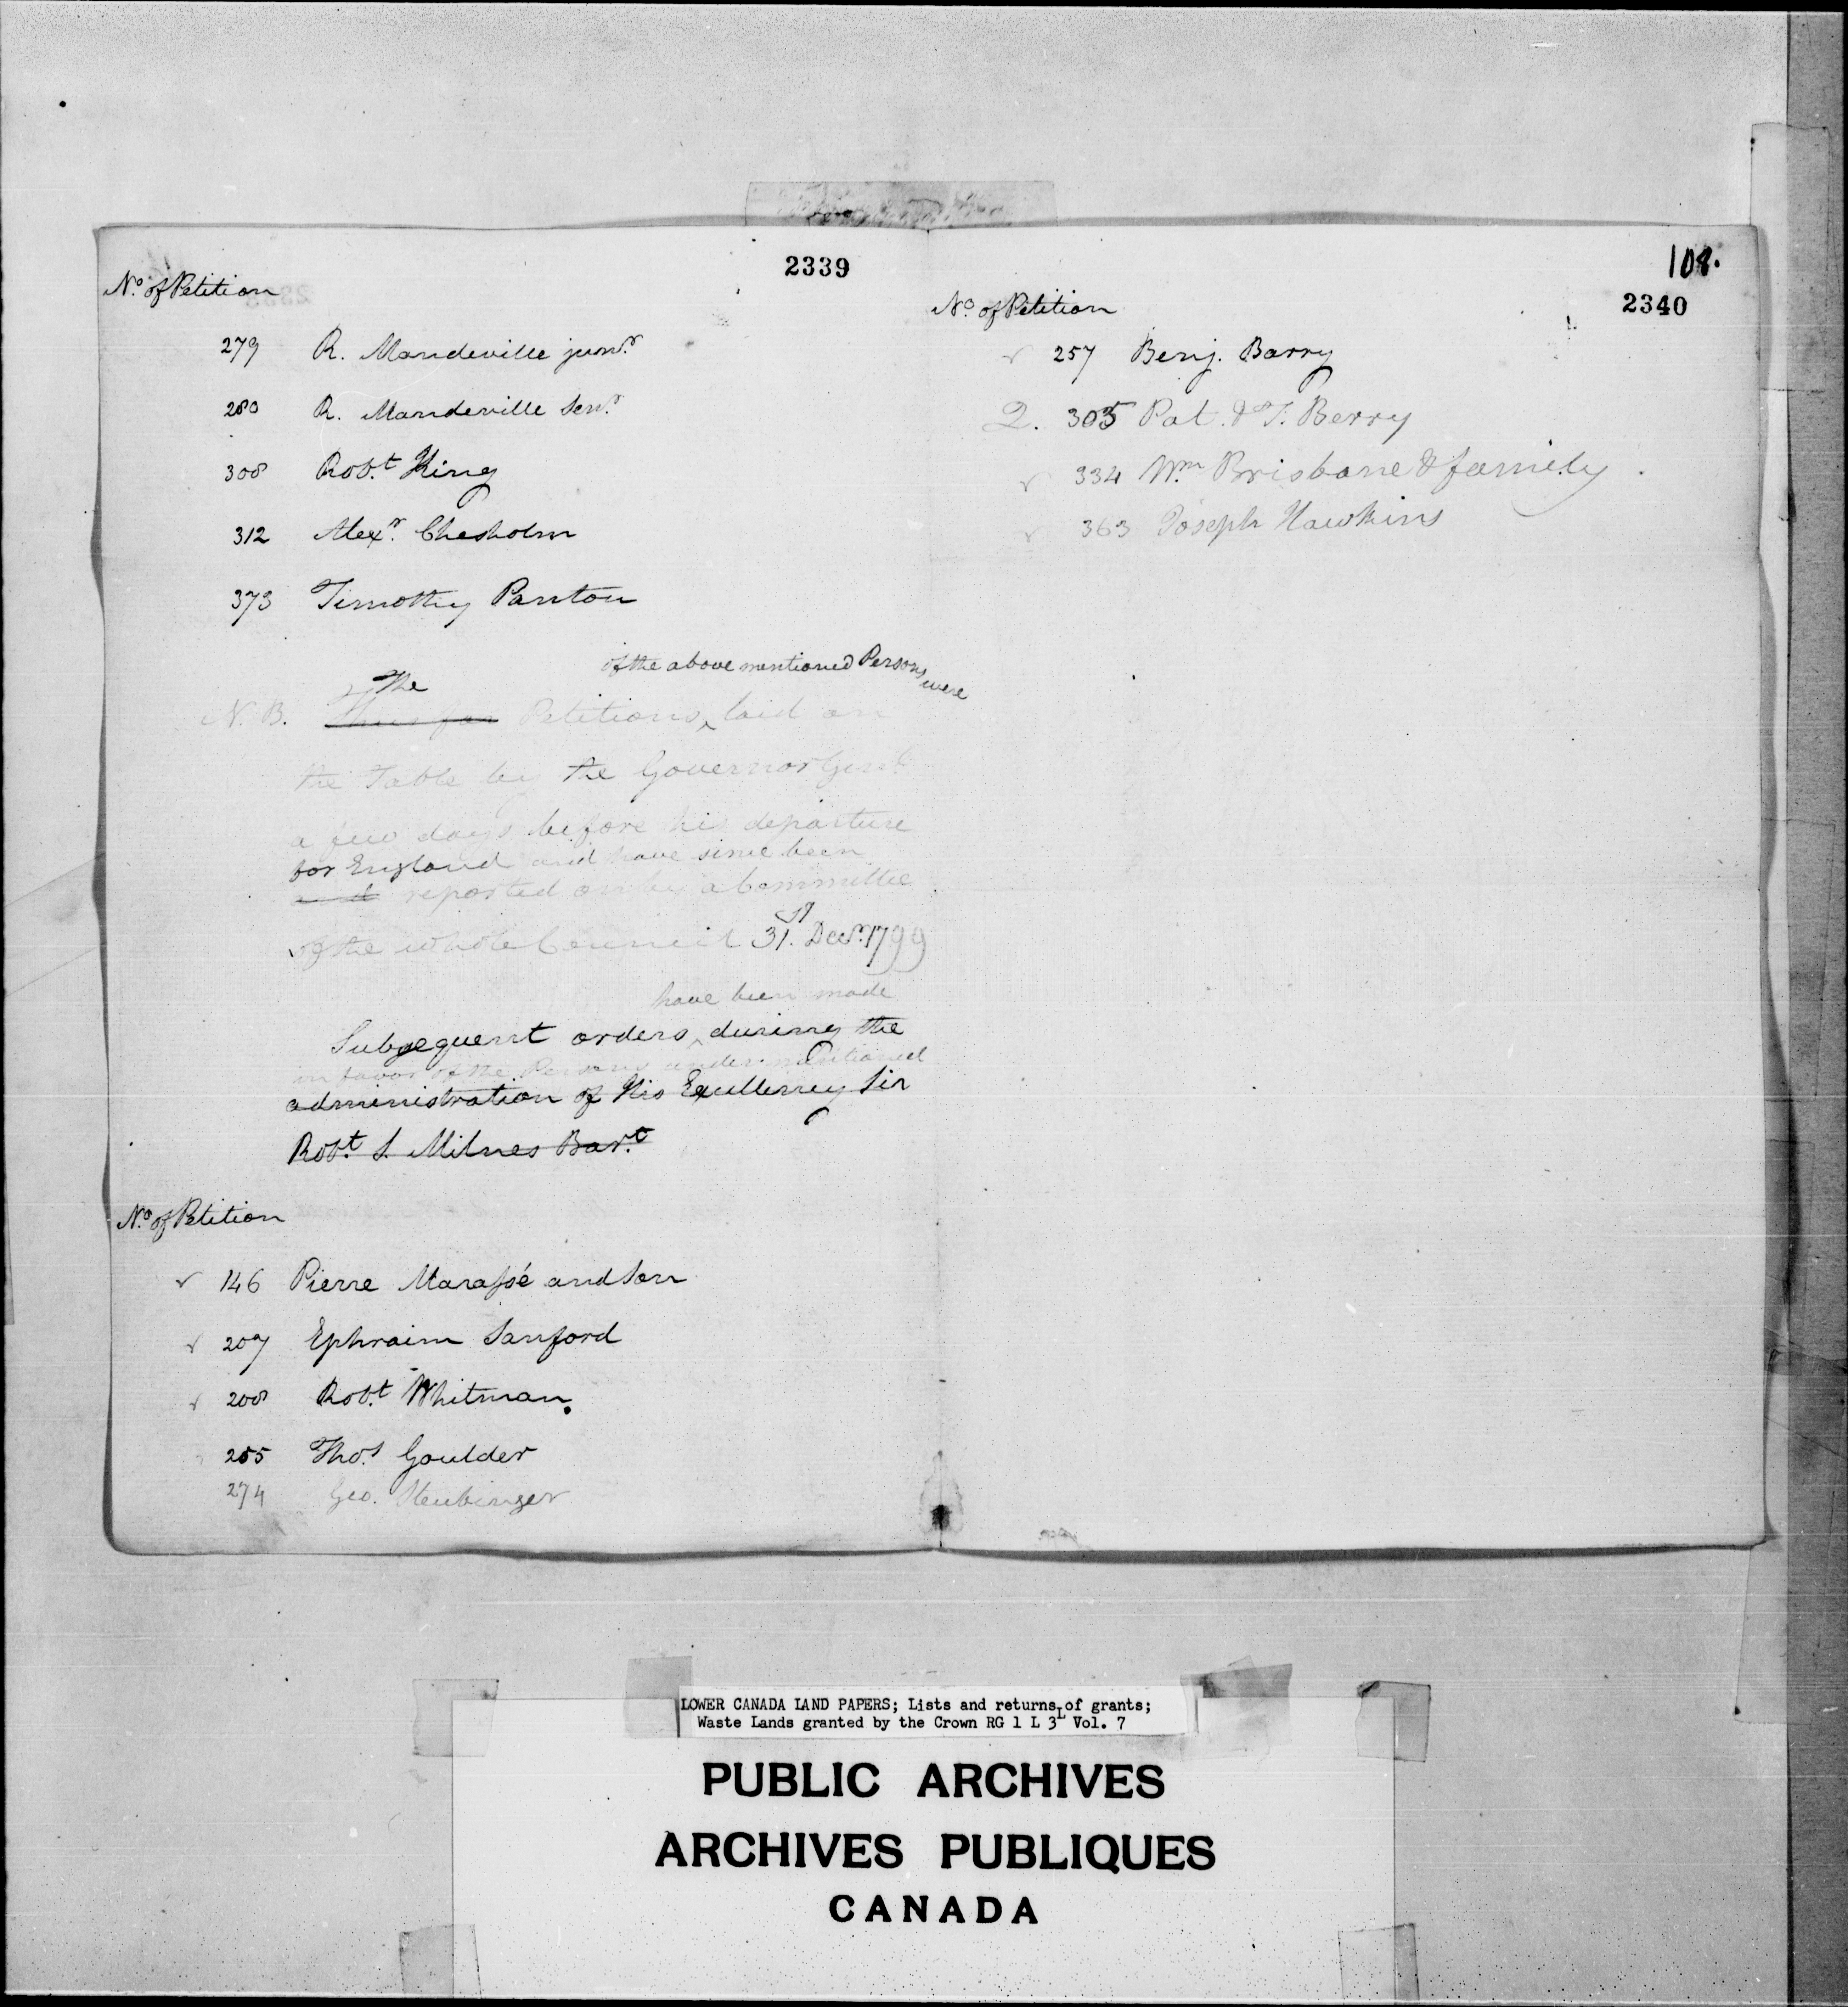 2339
No. of Petition
279 R. Mandeville junr.
280 R. Mandeville Senr.
308 Robt. King
312 Alexr. Chesholm
373 Timothy Panton
of the above mentioned Persons were
The
N. B. Thus far Petitions, laid on
the Table by the Governor Genl.
a few days before his departure
for England and have since been
and reported on by a Committee
of the whole Council 31st. Decr. 1799
have been made
Subsequent orders, during the
in favor of the Persons undermentioned
administration of His Excellency Sir
Robt. S. Milnes Bart.
No. of Petition
146 Pierre Marassé and Son
207 Ephraim Sanford
208 Robt. Whitman.
255 Thos. Goulder
274 Geo. Heubinger
108.
2340
No. of Petition
257 Benj. Barry
2. 305 Pat. & T. Berry
334 Wm. Brisbane & family
363 Joseph Hawkins
LOWER CANADA LAND PAPERS; Lists and returns of grants;
Waste Lands granted by the Crown RG 1 L 3L Vol. 7
PUBLIC ARCHIVES
ARCHIVES PUBLIQUES
CANADA